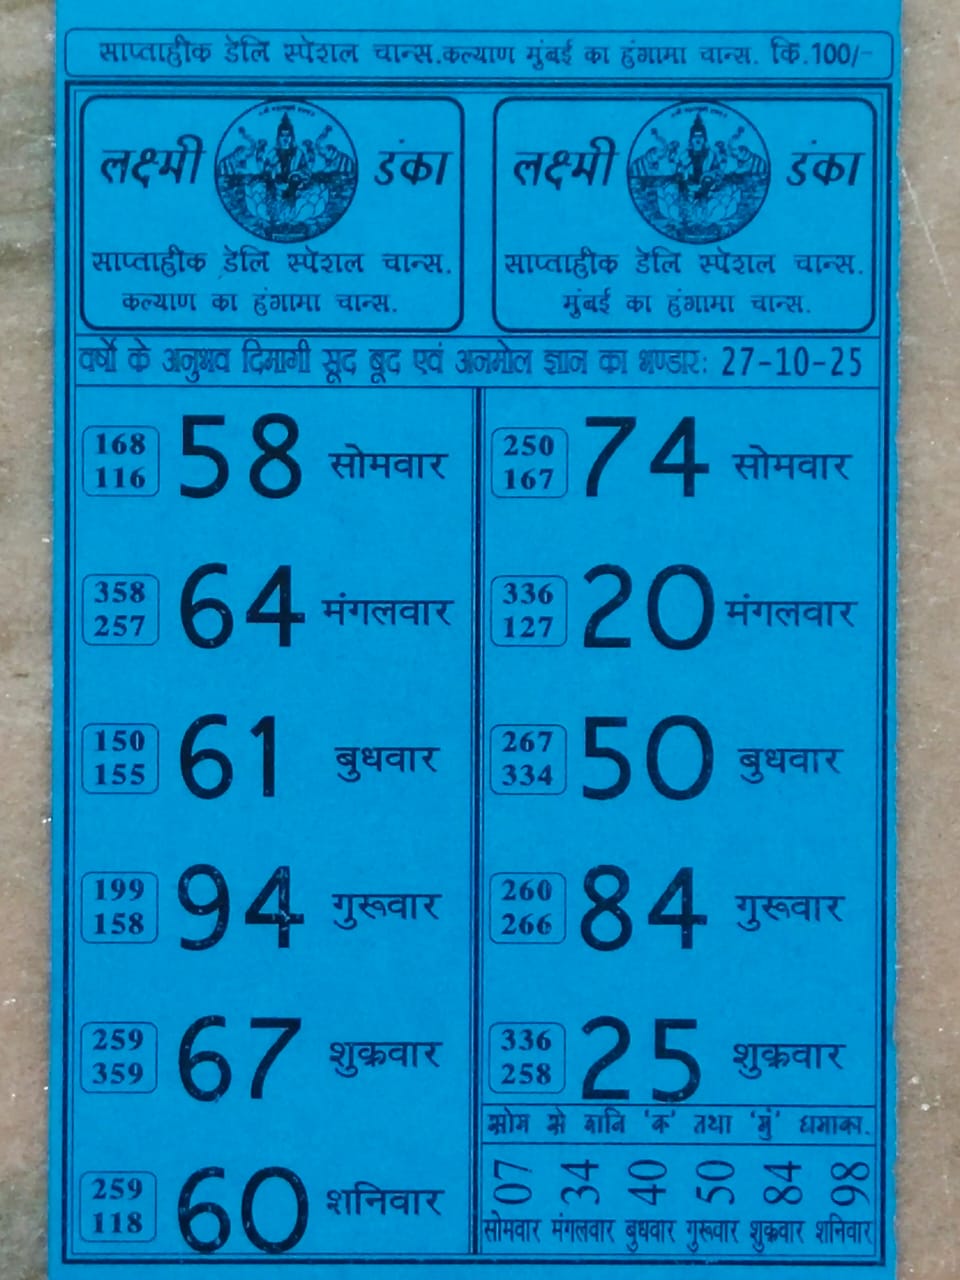 साप्ताहीक डेलि स्पेशल चान्स.कल्याण मुंबई का हुंगामा चान्स. कि.100/-
लक्ष्मी डंका
साप्ताहीक डेलि स्पेशल चान्स.
कल्याण का हुंगामा चान्स.
लक्ष्मी डंका
साप्ताहीक डेलि स्पेशल चान्स.
मुंबई का हुंगामा चान्स.
वर्षो के अनुभव दिमागी सूद बूद एवं अनमोल ज्ञान का भण्डार: 27-10-25
168
116
58 सोमवार
358
257
64 मंगलवार
150
155
61 बुधवार
199
158
94 गुरूवार
259
359
67 शुक्रवार
259
118
60 शनिवार
250
167
74 सोमवार
336
127
20 मंगलवार
267
334
50 बुधवार
260
266
84 गुरूवार
336
258
25 शुक्रवार
सोम से शनि 'क' तथा 'मुं' धमाका.
07 34 40 50 84 98
सोमवार मंगलवार बुधवार गुरूवार शुक्रवार शनिवार